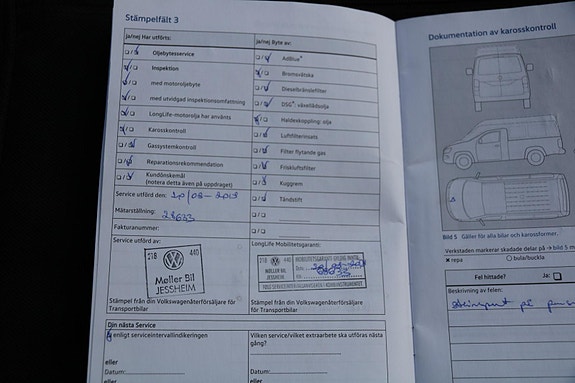 Stämpelfält 3
ja/nej Har utförts:
Oljebytesservice
Inspektion
med motoroljebyte
med utvidgad inspektionsomfattning
LongLife-motorolja har använts
Karosskontroll
Gassystemkontroll
Reparationsrekommendation
Kundönskemål
(notera detta även på uppdraget)
Service utförd den:
Mätarställning: 28633
Fakturanummer:
Service utförd av:
218 440
Møller Bil
JESSHEIM
Stämpel från din Volkswagenåterförsäljare för
Transportbilar
ja/nej Byte av:
AdBlue®
Bromsvätska
Dieselbränslefilter
DSG®-växellådsolja
Haldexkoppling: olja
Luftfilterinsats
Filter flytande gas
Friskluftsfilter
Kuggrem
Tändstift
LongLife Mobilitetsgaranti:
218 440
MØLLER BIL
JESSHEIM
Stämpel från din Volkswagenåterförsäljare för
Transportbilar
Din nästa Service
enligt serviceintervallindikeringen
eller
Datum:
eller
Vilken service/vilket extraarbete ska utföras nästa
gång?
Datum:
Dokumentation av karosskontroll
Bild 5 Gäller för alla bilar och karossformer.
Verkstaden markerar skadade delar på → bild 5 m
repa
bula/buckla
Fel hittade? Ja:
Beskrivning av felen:
Steinsprut på